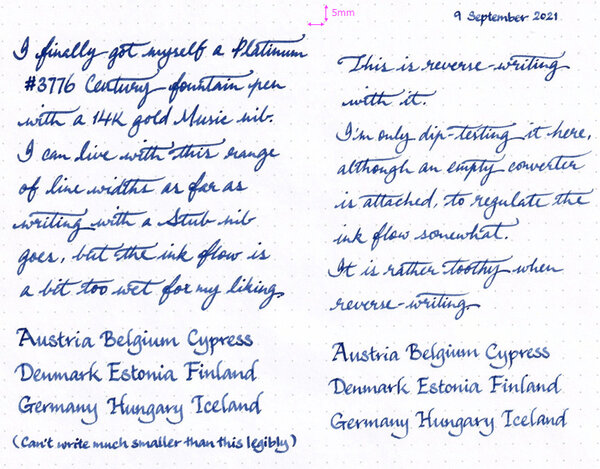 5mm
9 September 2021
I finally got myself a Platinum
#3776 Century fountain pen
with a 14K gold Music nib.
I can live with this range
of line widths as far as
writing with a Stub nib
goes, but the ink flow is
a bit too wet for my liking.
Austria Belgium Cypress
Denmark Estonia Finland
Germany Hungary Iceland
(Can't write much smaller than this legibly)
This is reverse-writing
with it.
I'm only dip-testing it here,
although an empty converter
is attached, to regulate the
ink flow somewhat.
It is rather toothy when
reverse-writing.
Austria Belgium Cypress
Denmark Estonia Finland
Germany Hungary Iceland